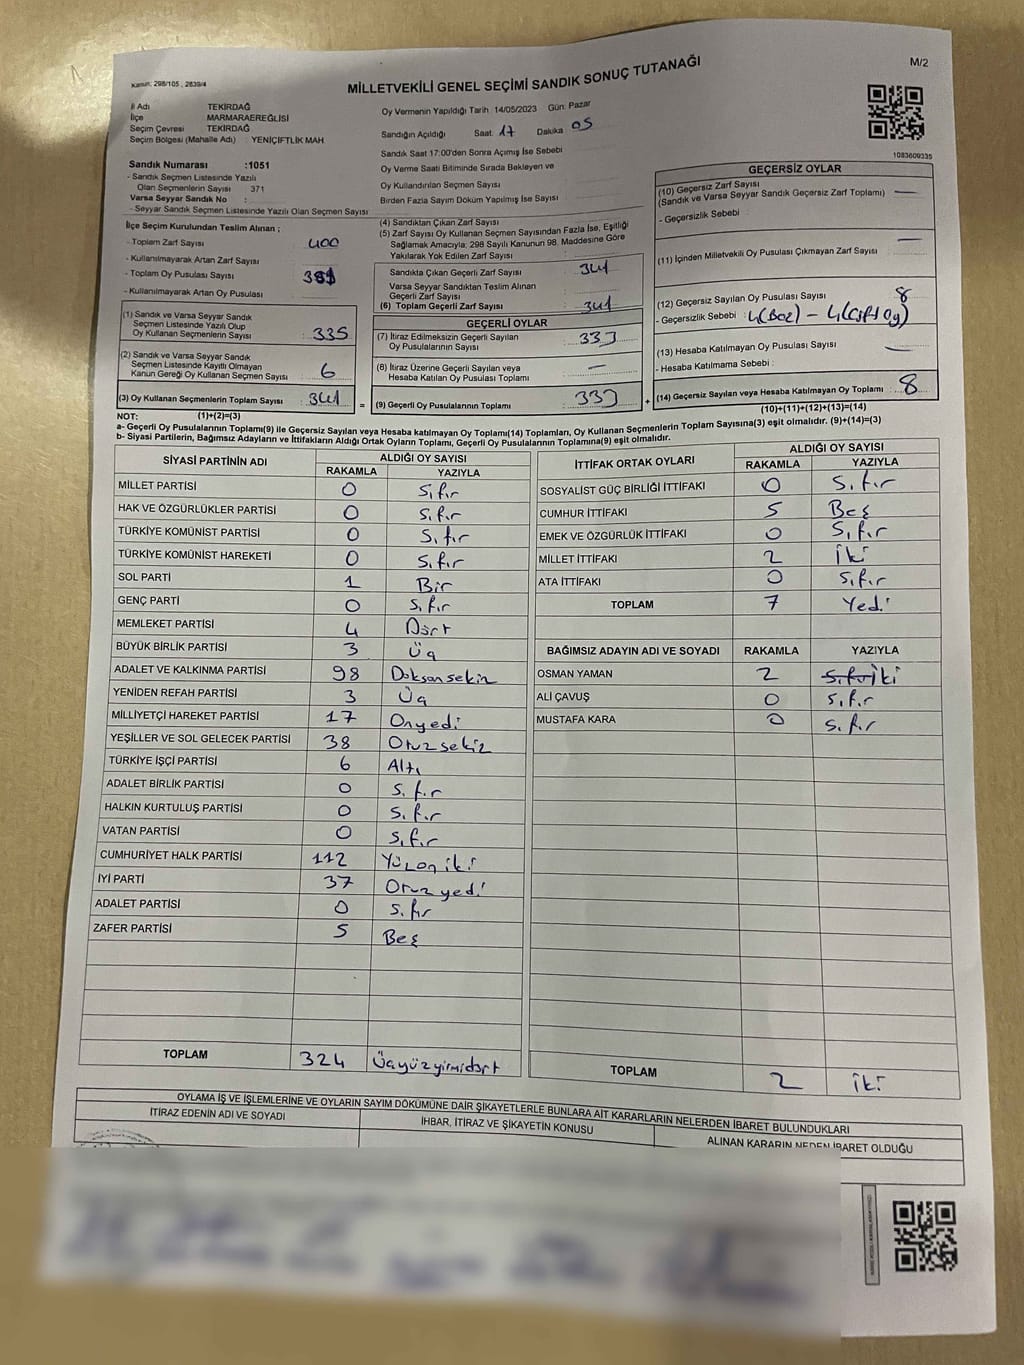 M/2
Kanun: 298/105 , 2839/4
MİLLETVEKİLİ GENEL SEÇİMİ SANDIK SONUÇ TUTANAĞI
İl Adı TEKİRDAĞ
İlçe MARMARAEREĞLİSİ
Seçim Çevresi TEKİRDAĞ
Seçim Bölgesi (Mahalle Adı) : YENİÇİFTLİK MAH
Sandık Numarası :1051
- Sandık Seçmen Listesinde Yazılı
Olan Seçmenlerin Sayısı 371
Varsa Seyyar Sandık No :
- Seyyar Sandık Seçmen Listesinde Yazılı Olan Seçmen Sayısı
Oy Vermenin Yapıldığı Tarih : 14/05/2023 Gün: Pazar
Sandığın Açıldığı Saat: 17 Dakika 05
Sandık Saat 17:00'den Sonra Açılmış İse Sebebi
Oy Verme Saati Bitiminde Sırada Bekleyen ve
Oy Kullandırılan Seçmen Sayısı
Birden Fazla Sayım Döküm Yapılmış İse Sayısı
1083609335
İlçe Seçim Kurulundan Teslim Alınan ;
- Toplam Zarf Sayısı 400
- Kullanılmayarak Artan Zarf Sayısı
- Toplam Oy Pusulası Sayısı
- Kullanılmayarak Artan Oy Pusulası
(1) Sandık ve Varsa Seyyar Sandık
Seçmen Listesinde Yazılı Olup
Oy Kullanan Seçmenlerin Sayısı 335
(2) Sandık ve Varsa Seyyar Sandık
Seçmen Listesinde Kayıtlı Olmayan
Kanun Gereği Oy Kullanan Seçmen Sayısı 6
(3) Oy Kullanan Seçmenlerin Toplam Sayısı 341 =
(4) Sandıktan Çıkan Zarf Sayısı
(5) Zarf Sayısı Oy Kullanan Seçmen Sayısından Fazla İse, Eşitliği
Sağlamak Amacıyla; 298 Sayılı Kanunun 98. Maddesine Göre
Yakılarak Yok Edilen Zarf Sayısı :
Sandıkta Çıkan Geçerli Zarf Sayısı 341
Varsa Seyyar Sandıktan Teslim Alınan
Geçerli Zarf Sayısı
(6) Toplam Geçerli Zarf Sayısı : 341
GEÇERLİ OYLAR
(7) İtiraz Edilmeksizin Geçerli Sayılan
Oy Pusulalarının Sayısı 333
(8) İtiraz Üzerine Geçerli Sayılan veya
Hesaba Katılan Oy Pusulası Toplamı —
(9) Geçerli Oy Pusulalarının Toplamı 333 +
GEÇERSİZ OYLAR
(10) Geçersiz Zarf Sayısı
(Sandık ve Varsa Seyyar Sandık Geçersiz Zarf Toplamı) —
- Geçersizlik Sebebi :
(11) İçinden Milletvekili Oy Pusulası Çıkmayan Zarf Sayısı —
(12) Geçersiz Sayılan Oy Pusulası Sayısı 8
- Geçersizlik Sebebi :
(13) Hesaba Katılmayan Oy Pusulası Sayısı —
- Hesaba Katılmama Sebebi :
(14) Geçersiz Sayılan veya Hesaba Katılmayan Oy Toplamı 8
NOT: (1)+(2)=(3) (10)+(11)+(12)+(13)=(14)
a- Geçerli Oy Pusulalarının Toplamı(9) ile Geçersiz Sayılan veya Hesaba katılmayan Oy Toplamı(14) Toplamları, Oy Kullanan Seçmenlerin Toplam Sayısına(3) eşit olmalıdır. (9)+(14)=(3)
b- Siyasi Partilerin, Bağımsız Adayların ve İttifakların Aldığı Ortak Oyların Toplamı, Geçerli Oy Pusulalarının Toplamına(9) eşit olmalıdır.
SİYASİ PARTİNİN ADI ALDIĞI OY SAYISI
RAKAMLA YAZIYLA
MİLLET PARTİSİ 0 Sıfır
HAK VE ÖZGÜRLÜKLER PARTİSİ 0 Sıfır
TÜRKİYE KOMÜNİST PARTİSİ 0 Sıfır
TÜRKİYE KOMÜNİST HAREKETİ 0 Sıfır
SOL PARTİ 1 Bir
GENÇ PARTİ 0 Sıfır
MEMLEKET PARTİSİ 4 Dört
BÜYÜK BİRLİK PARTİSİ 3 Üç
ADALET VE KALKINMA PARTİSİ 98 Doksansekiz
YENİDEN REFAH PARTİSİ 3 Üç
MİLLİYETÇİ HAREKET PARTİSİ 17 Onyedi
YEŞİLLER VE SOL GELECEK PARTİSİ 38 Otuzsekiz
TÜRKİYE İŞÇİ PARTİSİ 6 Altı
ADALET BİRLİK PARTİSİ 0 Sıfır
HALKIN KURTULUŞ PARTİSİ 0 Sıfır
VATAN PARTİSİ 0 Sıfır
CUMHURİYET HALK PARTİSİ 112 Yüzoniki
İYİ PARTİ 37 Otuzyedi
ADALET PARTİSİ 0 Sıfır
ZAFER PARTİSİ 5 Beş
TOPLAM 324 Üçyüzyirmidört
İTTİFAK ORTAK OYLARI ALDIĞI OY SAYISI
RAKAMLA YAZIYLA
SOSYALİST GÜÇ BİRLİĞİ İTTİFAKI 0 Sıfır
CUMHUR İTTİFAKI 5 Beş
EMEK VE ÖZGÜRLÜK İTTİFAKI 0 Sıfır
MİLLET İTTİFAKI 2 İki
ATA İTTİFAKI 0 Sıfır
TOPLAM 7 Yedi
BAĞIMSIZ ADAYIN ADI VE SOYADI RAKAMLA YAZIYLA
OSMAN YAMAN 2 Sıfır iki
ALİ ÇAVUŞ 0 Sıfır
MUSTAFA KARA 0 Sıfır
TOPLAM 2 İki
OYLAMA İŞ VE İŞLEMLERİNE VE OYLARIN SAYIM DÖKÜMÜNE DAİR ŞİKAYETLERLE BUNLARA AİT KARARLARIN NELERDEN İBARET BULUNDUKLARI
İTİRAZ EDENİN ADI VE SOYADI İHBAR, İTİRAZ VE ŞİKAYETİN KONUSU ALINAN KARARIN NEDEN İBARET OLDUĞU